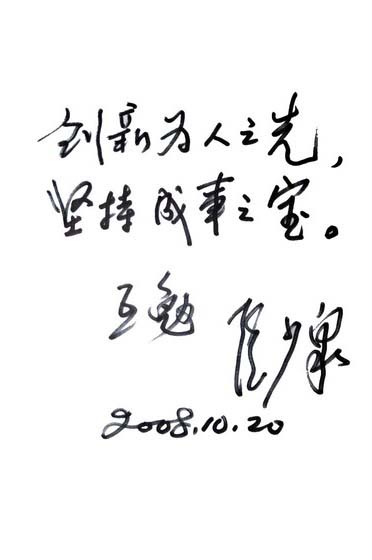 创新为人之先，
坚持成事之宝。
互勉
2008.10.20